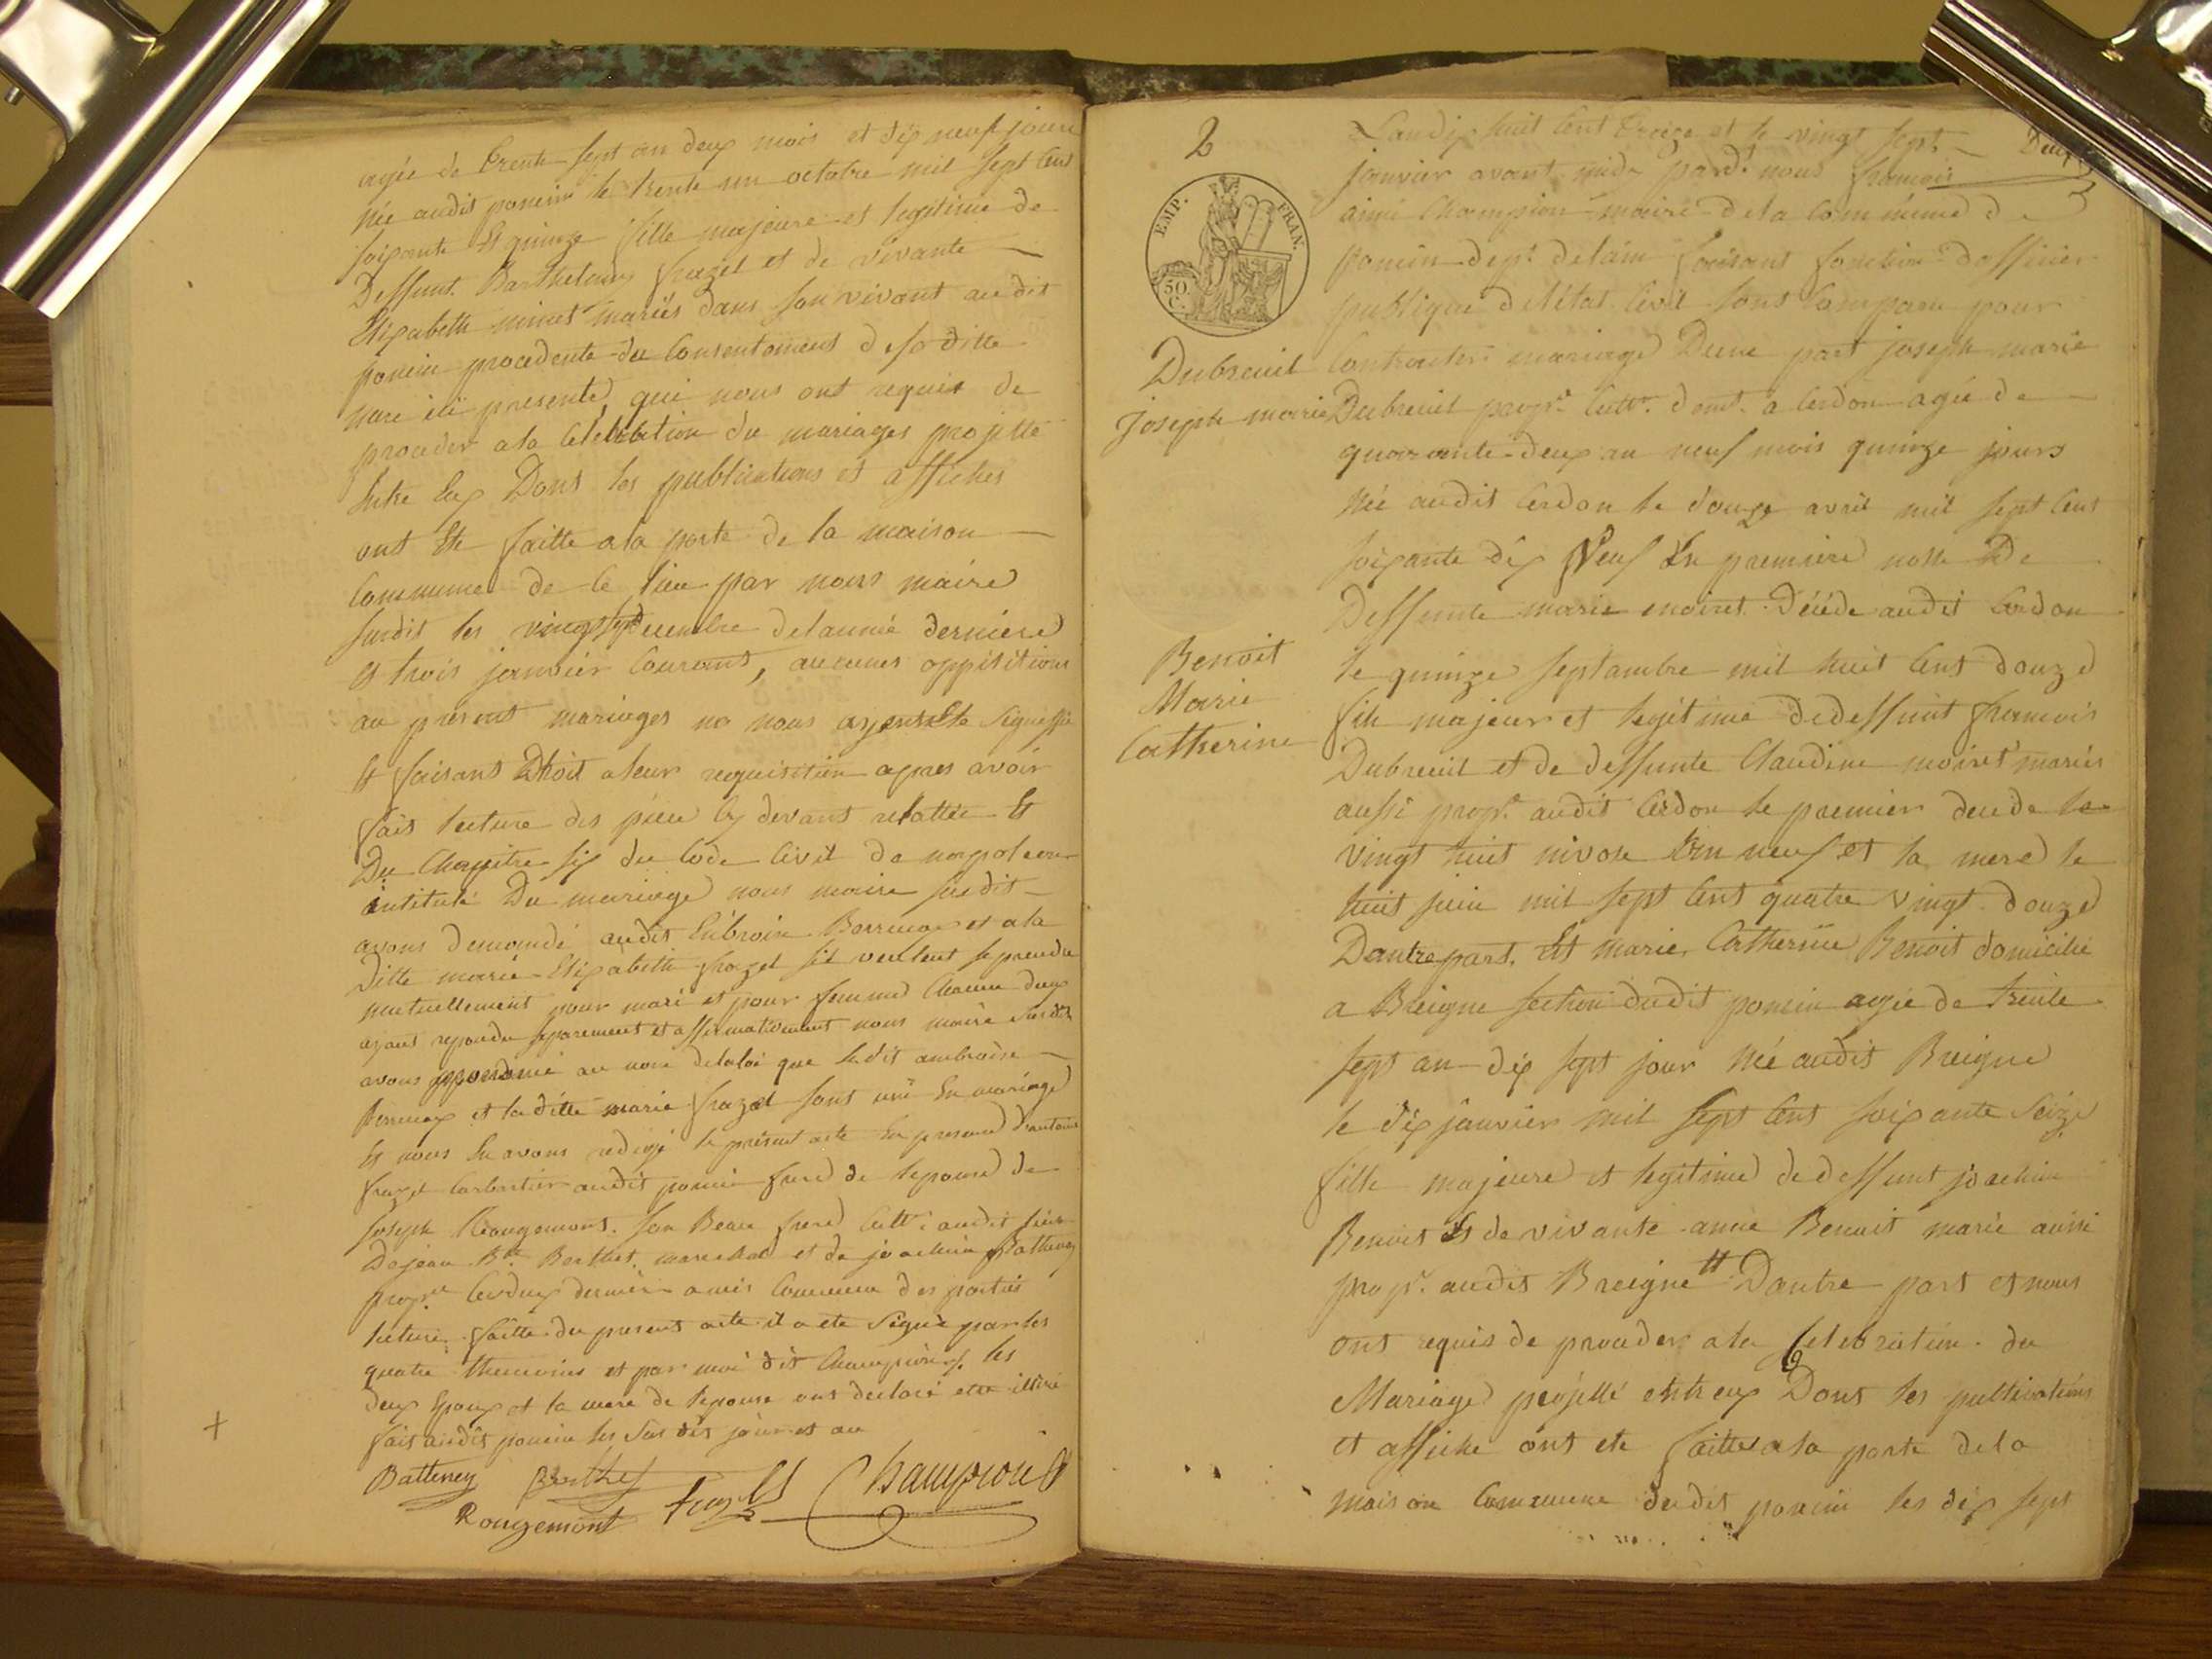 agée de trente sept an deux mois et dix neuf jours
née audit poncin le trente un octobre mil sept cent
soixante et quinze fille majeure et legitime de
Deffunt Barthelemy frazel et de vivante
Elisabeth mariés dans son vivant audit
poncin procedente du consentement de sa ditte
mere ici presente, qui nous ont requis de
proceder a la celebration du mariages projetté
entre eux Dont les publications et affiches
ont ete faitte a la porte de la maison
commune de ce lieu par nous maire
susdit les vingt sept decembre de lannée derniere
et trois janvier courant, aucunes oppisitions
au present mariages ne nous ayant ete signiffié
et faisant droit a leur requisition apres avoir
fait lecture des piece cy devant relattée et
Du chapitre six du code civil de napoleon
intitulé Du mariage nous maire susdit
avons demandé audit et a la
Ditte marie Elisabeth frazel sil veulent se prendre
mutuellement pour mari et pour femme chacun deux
ayant repondu separement et affirmativement nous maire susdit
avons prononcé au nom de la loi que ledit ambroise
et la ditte marie frazel sont uni en mariage
et nous en avons redigé le présent acte en presence dantoine
frazel audit poncin frere de lepouse de
joseph Rougemont son Beau frere cultr audit lieu
De jean Bte Berthet, marechal et de joachim Battenay
propre ces deux dernier amis commun des parties
lecture faitte du present acte il a ete signé par les
quatre themoins et par moi dit Champion, les
deux Epoux et la mere de lepouse ont declaré etre illitré
fait audit poncin les sus dit jour et an
Battenay Berthet
Rougemont frazel Champion
+
2
Deux
EMP. FRAN.
50 C.
Dubreuil
Joseph marie
Benoit
Marie
Catherine
Lan dix huit cent treize et le vingt sept
janvier avant midi pard. nous francois
aimé Champion maire de la commune de
poncin dept. de lain faisant fonction dofficier
publique de létat civil sont comparu pour
contracter mariage Dune part joseph marie
Dubreuil propr. cultr. domt. a cerdon agée de
quarante deux an neuf mois quinze jours
née audit cerdon le douze avril mil sept cent
soixante dix Veuf En premiere nosse De
Deffunte marie moiret Décéde audit cerdon
le quinze septambre mil huit cent douze
fils majeur et legitime de deffunt francois
Dubreuil et de deffunte Claudine moiret mariés
aussi propr. audit cerdon le premier decede le
vingt huit nivose an neuf et la mere le
huit juin mil sept cent quatre vingt douze
Dautre part. Et marie Catherine Benoit domicilié
a Breigne section dudit poncin agée de trente
sept an dix sept jour née audit Breigne
le dix janvier mil sept cent soixante seize
fille majeure et legitime de deffunt joachim
Benoit et de vivante anne Benoit marié aussi
propr. audit Breigne Dautre part et nous
ont requis de proceder a la Celebration du
Mariage projetté entre eux Dont les publications
et affiche ont ete faittes a la porte de la
maison commune dudit poncin les dix sept